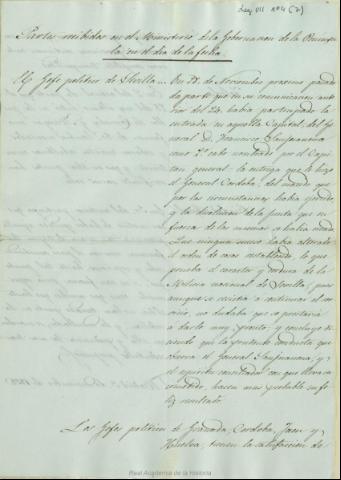 Leg VII nº 4 (7)
Partes recibidos en el Ministerio de la Gobernacion de la Peninsu
la en el dia de la fecha.
El Jefe politico de Sevilla... En 28 de Noviembre proximo pasado
da parte que en su comunicacion ante
rior del 24 habia participado la
entrada en aquella Capital, del Ge
neral D. Francisco Sanjuanena
como 2º cabo nombrado por el Capi
tan general: la entrega que le hizo
el General Cordoba, del mando que
por las circunstancias habia ejercido
y la disolucion de la junta que en
fuerza de las mismas se habia
Que ningun suceso habia alterado
el orden de cosas establecido, lo que
prueba el caracter y cordura de la
Milicia nacional de Sevilla, pues
aunque se resistia a continuar el ser
vicio, no dudaba que se prestaria
a darlo muy pronto; y concluye di
ciendo que la prudente conducta que
observa el General Sanjuanena, y
el espiritu conciliador con que lleva su
cometido, hacen mas probable un fe
liz resultado.
Los Jefes politicos de Granada, Cordoba, Jaen y
Huelva, tienen la satisfaccion de
Real Academia de la Historia